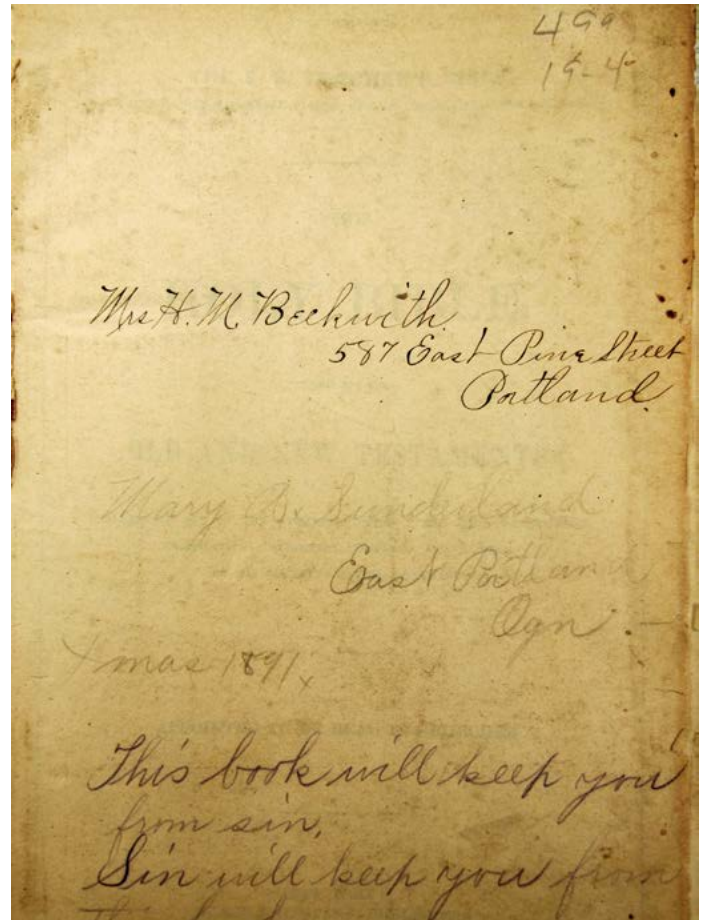 Mrs H. M. Beckwith
587 East Pine Street
Portland.
Mary B. Sunderland
East Portland
Ogn.
Xmas 1891,
This book will keep you
from sin,
Sin will keep you from